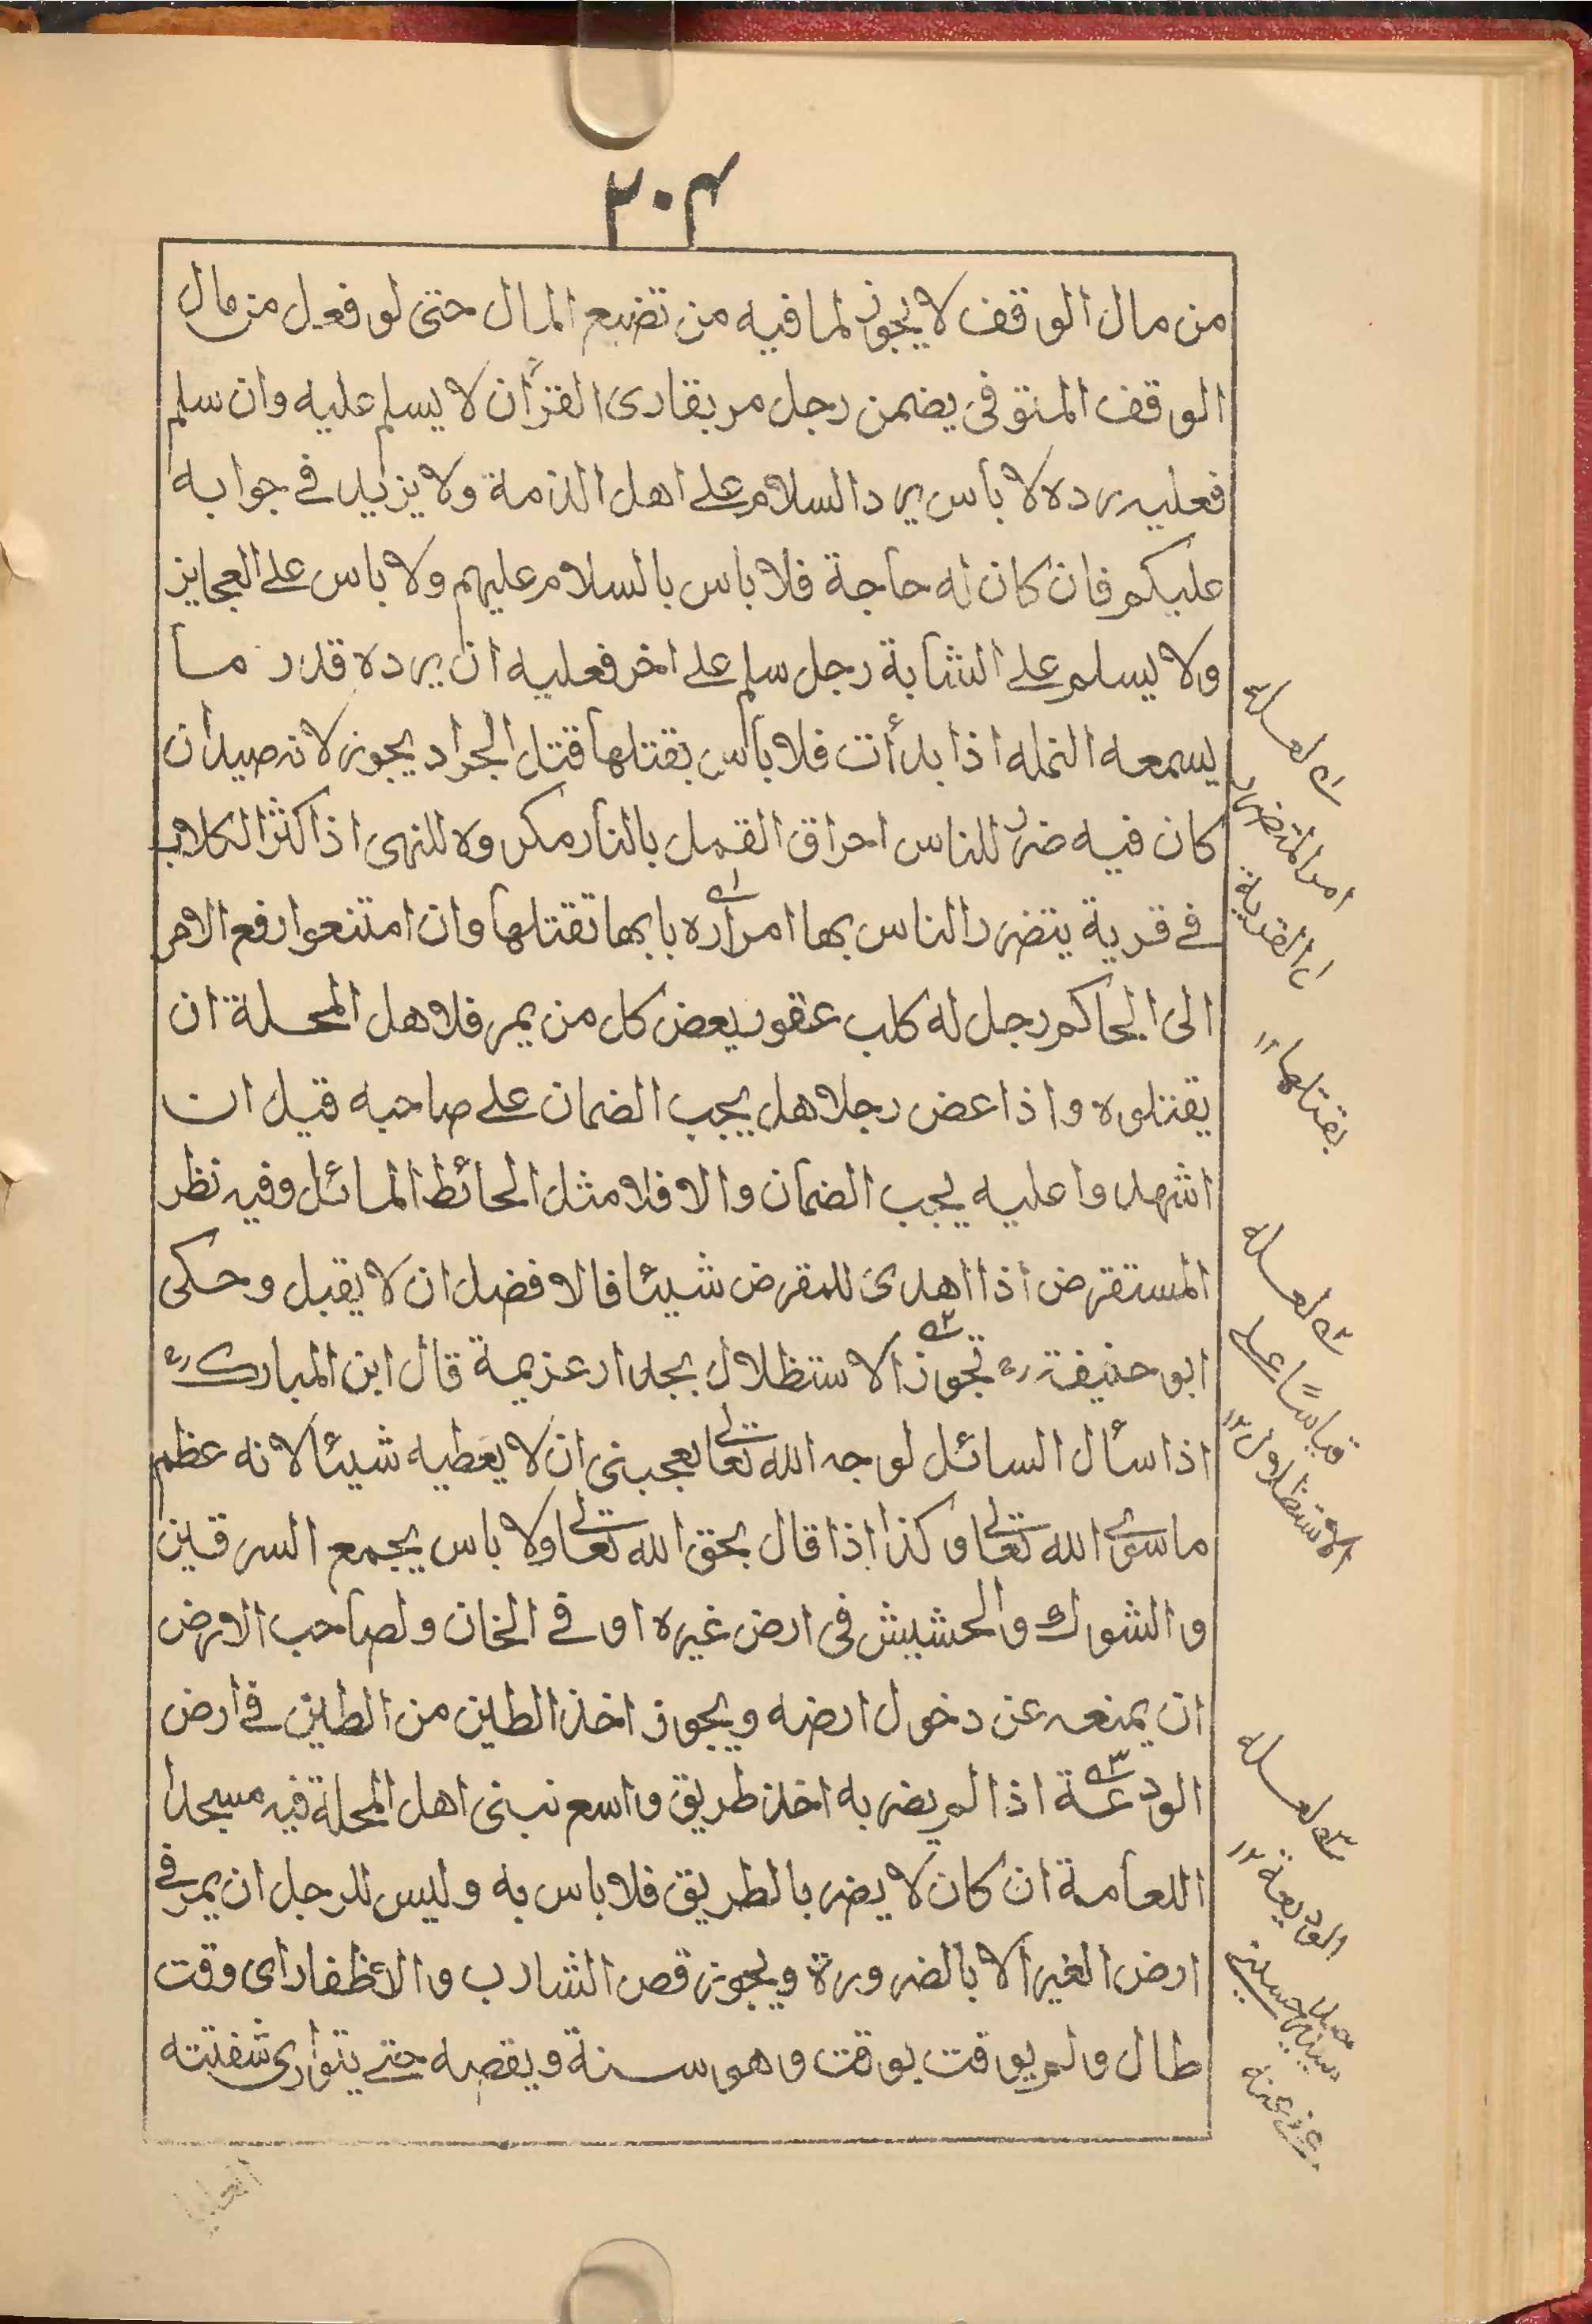 ٢٠٤
من مال الوقف لا يجوز لما فيه من تضيع المال حتى لو فعل من مال
الوقف المتوفى يضمن رجل مر بقارى القرآن لا يسلم عليه وان سلم
فعليه رده لا باس برد السلام على اهل الذمة ولا يزيد في جوابه
عليكم فان كان له حاجة فلا باس بالسلام عليهم ولا باس على العجايز
ولا يسلم على الشابة رجل سلم على اخر فعليه ان يرده قدر ما
يسمعه النمله اذا بدأت فلا باس بقتلها قتل الجراد يجوز لانه صيد ان
كان فيه ضرر للناس احراق القمل بالنار مكروه للنهى اذا كثر الكلاب
في قرية يتضرر الناس بها امر اره بابها تقتلها وان امتنعوا رفع الامر
الى الحاكم رجل له كلب عقور يعض كل من يمر فلاهل المحلة ان
يقتلوه واذا عض رجلا هل يجب الضمان على صاحبه قيل ان
اشهدوا عليه يجب الضمان والا فلا مثل الحائط المائل وفيه نظر
المستقرض اذا اهدى للمقرض شيئا فالافضل ان لا يقبل وحكى
ابو حنيفة رح تجوز الاستظلال بجدار عزيمة قال ابن المبارك رح
اذا سأل السائل لوجه الله تعالى يعجبنى ان لا يعطيه شيئا لانه عظم
ما سوى الله تعالى وكذا اذا قال بحق الله تعالى ولا باس بجمع السرقين
والشوك والحشيش فى ارض غيره او في الخان ولصاحب الارض
ان يمنعه عن دخول ارضه ويجوز اخذ الطين من الطين في ارض
الودعة اذا لم يضر به اخذ طريق واسع نبنى اهل المحلة فيه مسجدا
اللعامة ان كان لا يضر بالطريق فلا باس به وليس للرجل ان يمر في
ارض الغير الا بالضرورة ويجوز قص الشارب والاظفار اى وقت
طال ولم يوقت بوقت وهو سنة ويقصه حتى يتوارى شفتته
لعله
امر المتضرر
القرية
بقتلها ١٢
لعله
قياسًا على
الاستظلال ١٢
لعله
الوديعة ١٢
عفى عنه